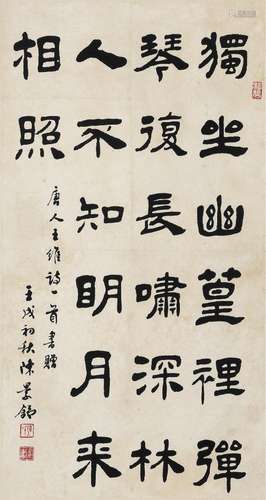 獨坐幽篁裡彈
琴復長嘯深林
人不知明月来
相照
唐人王維詩一首書贈
壬戌初秋陳景鎬